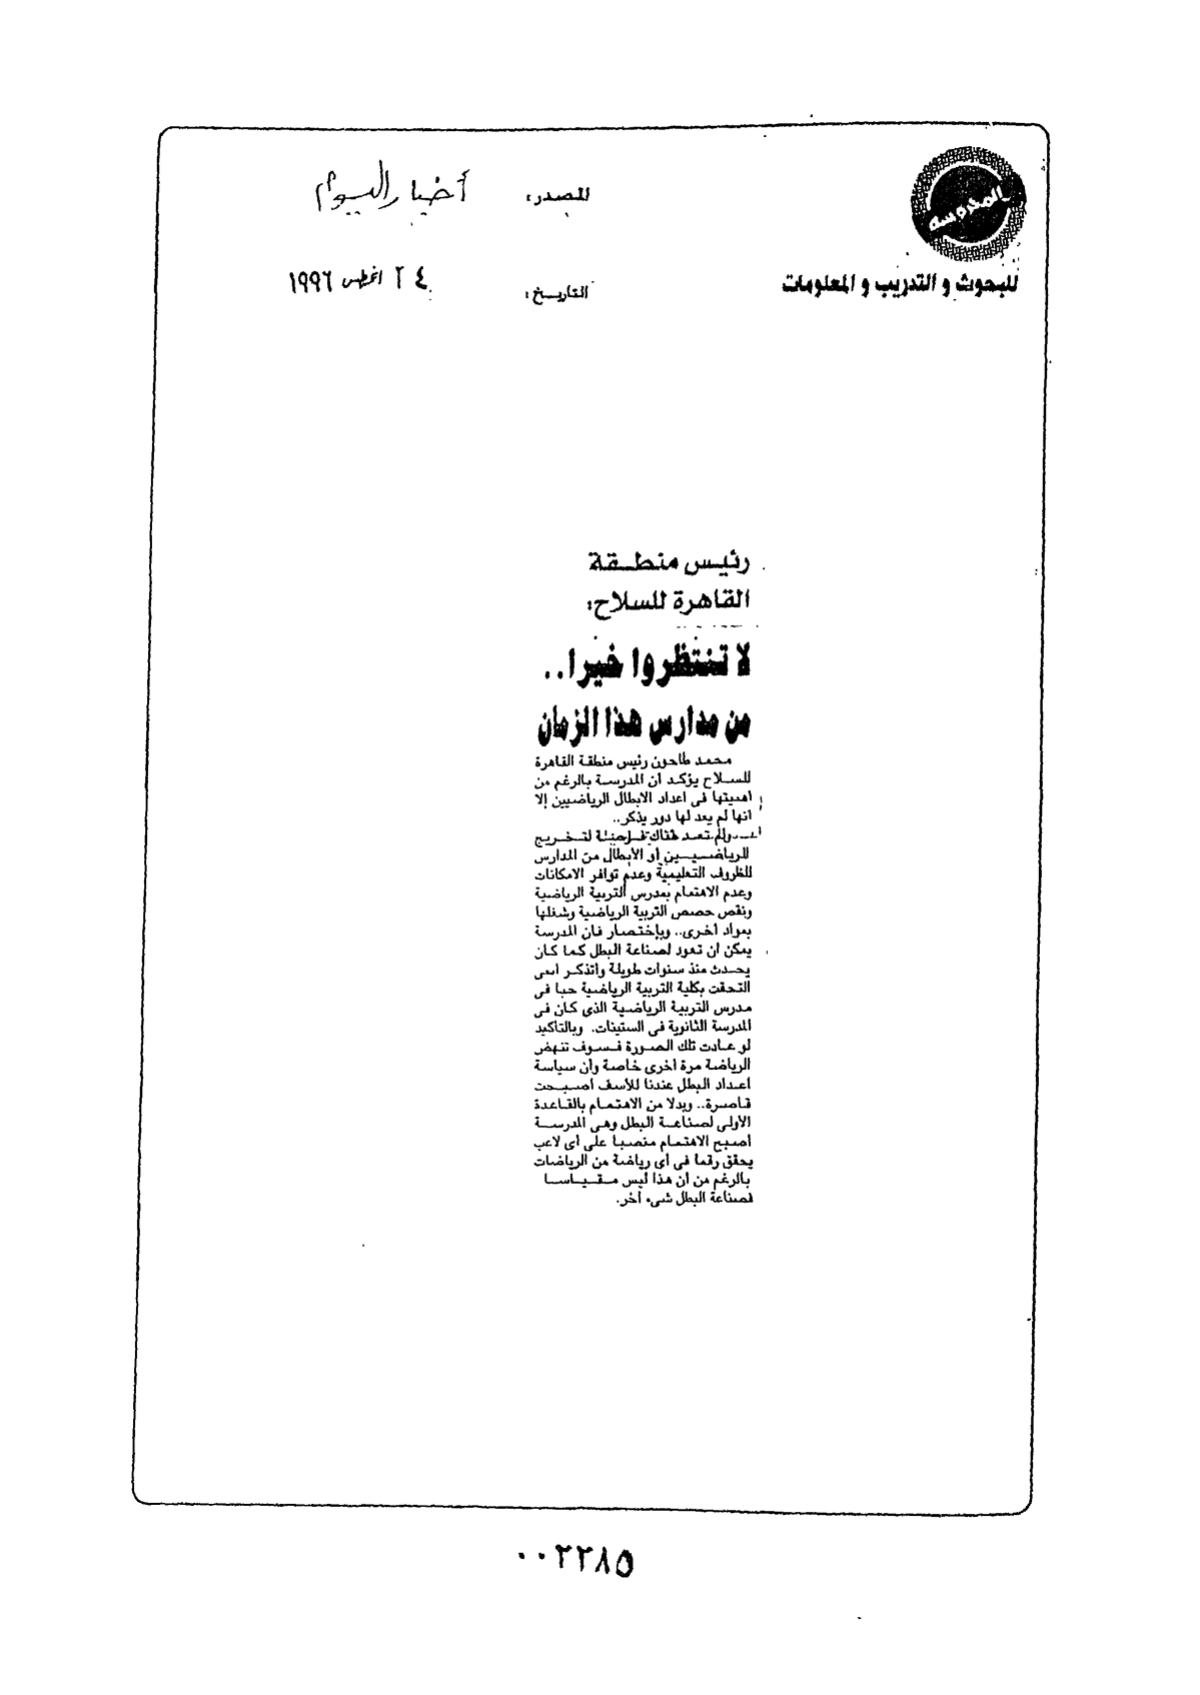 المحروسة
للبحوث و التدريب و المعلومات
المصدر: أخبار اليوم
التاريخ: ٢٤ اغسطس ١٩٩٦
رئيس منطقة
القاهرة للسلاح:
لا تنتظروا خيرا..
من مدارس هذا الزمان
محمد طاحون رئيس منطقة القاهرة
للسلاح يؤكد أن المدرسة بالرغم من
أهميتها فى اعداد الابطال الرياضيين إلا
انها لم يعد لها دور يذكر..
ولم تعد هناك لتخريج
الرياضيين أو الأبطال من المدارس
للظروف التعليمية وعدم توافر الامكانات
وعدم الاهتمام بمدرس التربية الرياضية
ونقص حصص التربية الرياضية وشغلها
بمواد أخرى.. وبإختصار فان المدرسة
يمكن ان تعود لصناعة البطل كما كان
يحدث منذ سنوات طويلة واتذكر اننى
التحقت بكلية التربية الرياضية حبا فى
مدرس التربية الرياضية الذى كان فى
المدرسة الثانوية فى الستينات. وبالتأكيد
لو عادت تلك الصورة فسوف تنهض
الرياضة مرة أخرى خاصة وأن سياسة
اعداد البطل عندنا للأسف أصبحت
قاصرة.. وبدلا من الاهتمام بالقاعدة
الأولى لصناعة البطل وهى المدرسة
أصبح الاهتمام منصبا على أى لاعب
يحقق رقما فى أى رياضة من الرياضات
بالرغم من ان هذا ليس مقياسا
فصناعة البطل شىء أخر.
٠٠٢٢٨٥